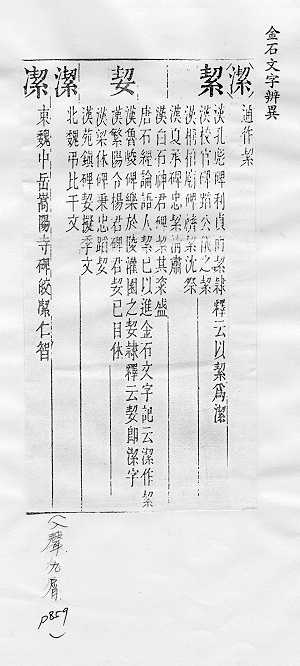 金石文字辨異
(潔)通作絜
絜
漢孔彪碑利貞之絜隸釋云以絜爲潔
漢校官碑公儀之絜
漢夏承碑忠絜清肅
漢白石神君碑絜其粢盛
唐石經論語人絜已以進金石文字記云潔作絜
契
漢魯峻碑樂於陵灌園之契隸釋云契即潔字
漢繁陽令楊君碑君契已目休
漢梁休碑秉忠蹈契
漢苑鎮碑契擬季文
潔
北魏弔比干文
潔
東魏中岳嵩陽寺碑皎潔仁智
(入聲九屑 p859)